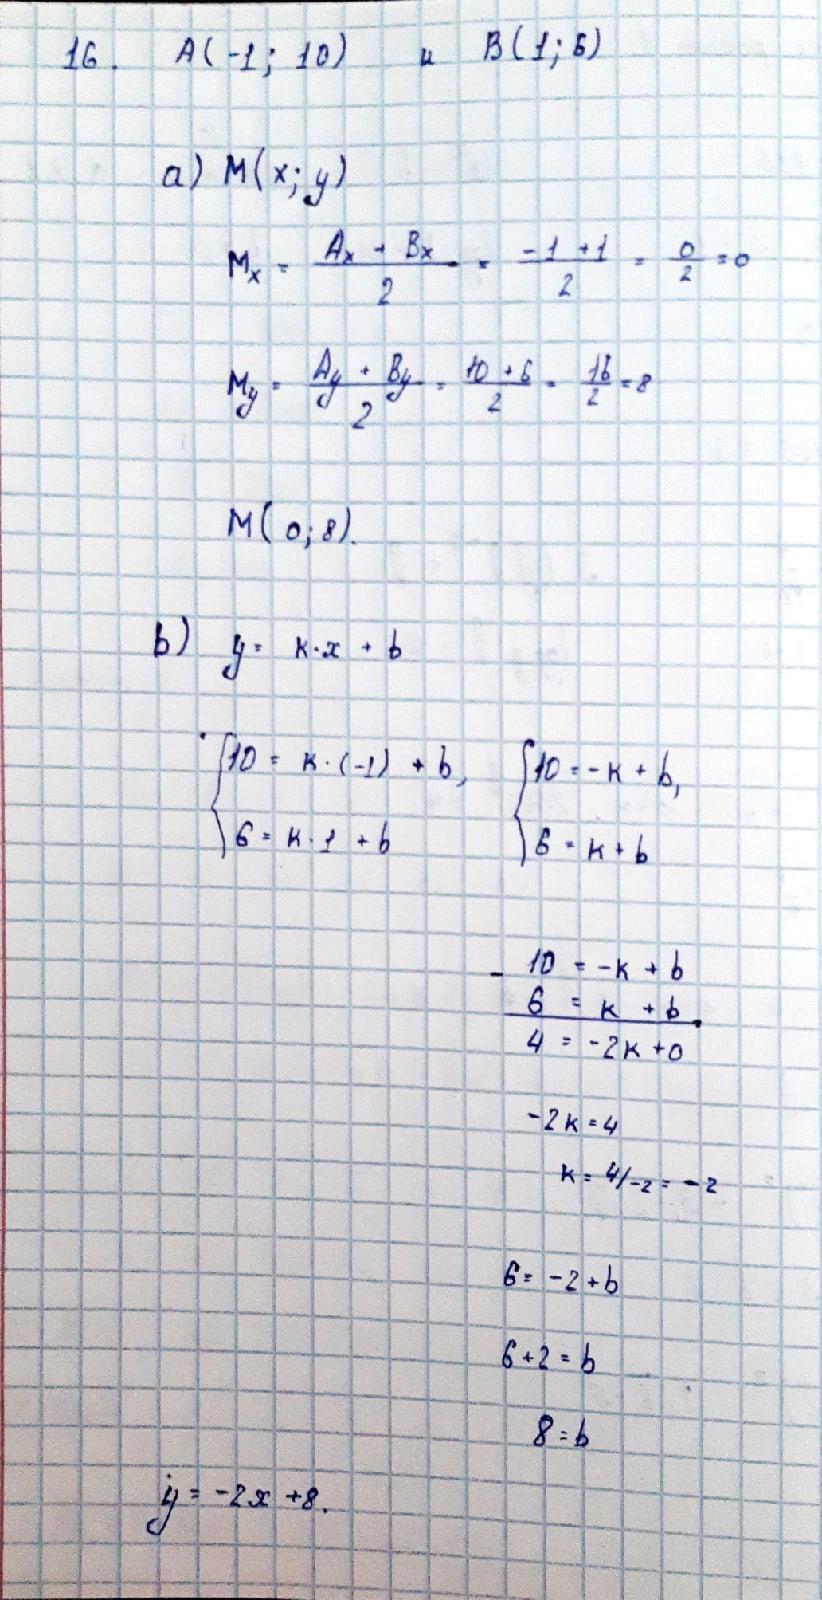 16. A(-1; 10) и B(1; 6)
a) M(x; y)
Mx = Ax + Bx / 2 = -1 + 1 / 2 = 0/2 = 0
My = Ay + By / 2 = 10 + 6 / 2 = 16/2 = 8
M(0; 8).
b) y = k·x + b
{10 = k·(-1) + b, {10 = -k + b,
6 = k·1 + b 6 = k + b
- 10 = -k + b
6 = k + b
4 = -2k + 0
-2k = 4
k = 4/-2 = -2
6 = -2 + b
6 + 2 = b
8 = b
y = -2x + 8.